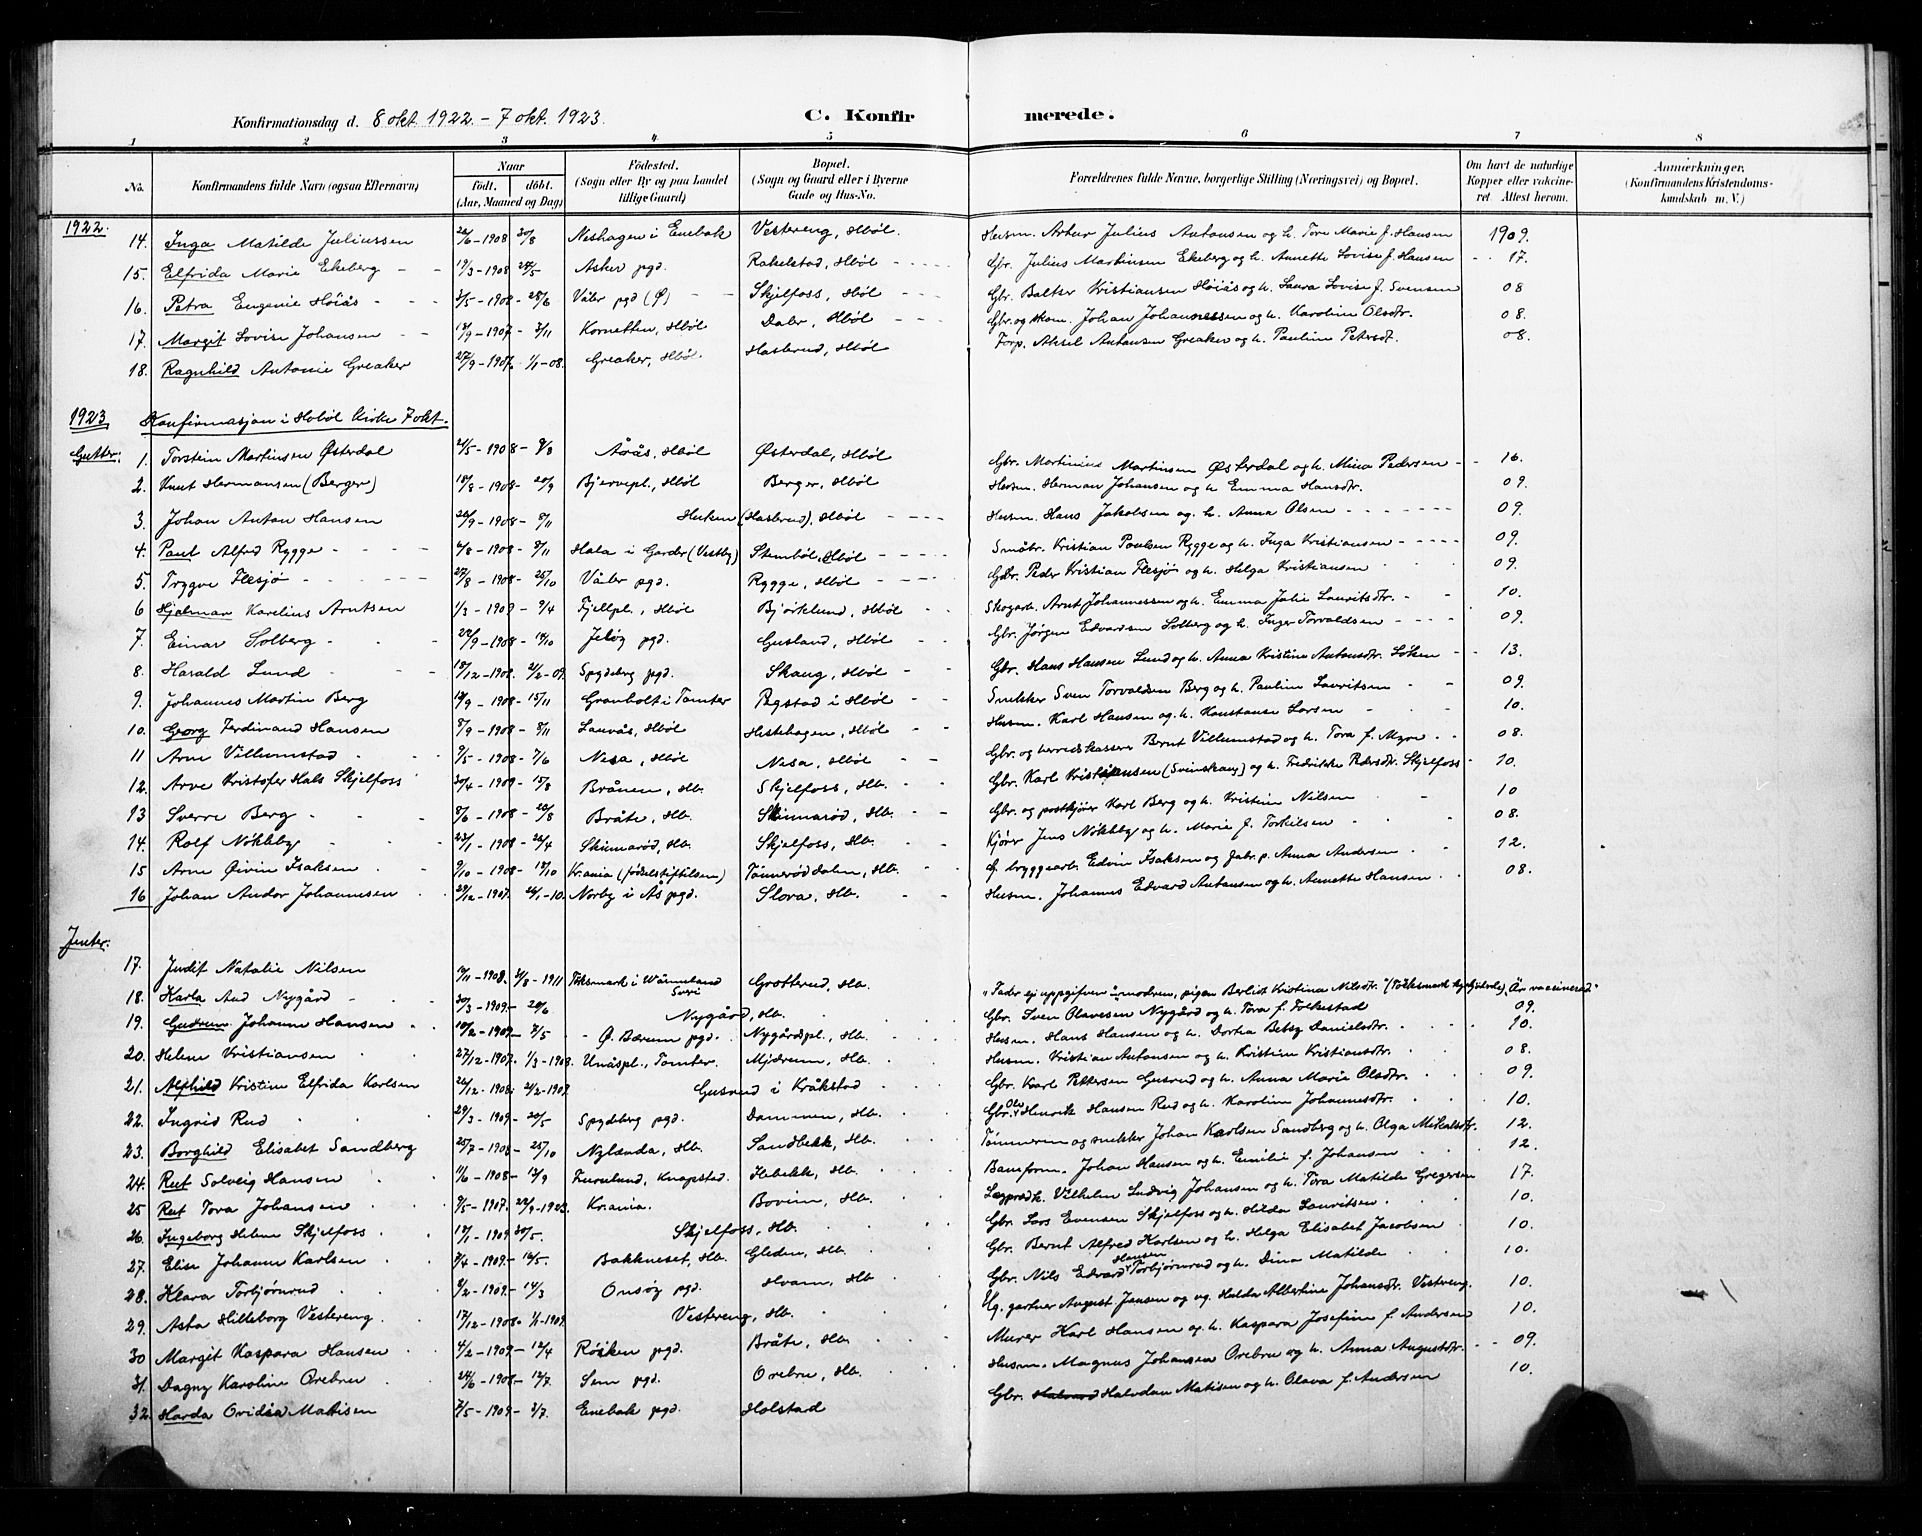 Konfirmationsdag d. 8 okt 1922 - 7 okt. 1923. C. Konfir merede.
1 2 3 4 5 6 7 8
No. Konfirmandens fulde Navn (ogsaa Efternavn) Naar født. døbt. (Aar, Maaned og Dag) Fødested. (Sogn eller By og paa Landet tillige Gaard) Bopæl. (Sogn og Gaard eller i Byerne Gade og Hus-No. Forældrenes fulde Navne, borgerlige Stilling (Næringsvei) og Bopæl. Om havt de naturlige Kopper eller vakcineret. Attest herom. Anmærkninger. (Konfirmandens Kristendomskundskab m. V.)
1922.
14. Inga Matilde Juliussen 26/6-1908 30/8 Neshagen i Enebak Vestereng, Hbøl. Husm. Artur Julius Antonsen og h. Tora Marie f. Hansen 1909.
15. Elfrida Marie Ekeberg 19/3-1908 Asker pgd. Rakelstad, Hbøl Gbr. Julius Martinsen Ekeberg og h. Annette Lovise f. Hansen 17.
16. Petra Eugenie Høiås 3/5-1908 - 28/6 Våler pgd (Ø) Skjelfoss, Hbøl Gbr. Balter Kristiansen Høiås og h. Laura Lovise f. Svensen 08
17. Margit Lovise Johansen 18/9-1907 - 3/11 Kornetten, Hbøl Daler, Hbøl Gbr. og skom. Johan Johannessen og h. Karoline Olsdtr. 08.
18. Ragnhild Antonie Greaker 27/9-1907. 1/1-08. Greaker, Hbøl. Hasbrud, Hbøl Forp. Aksel Antonsen Greaker og h. Pauline Petersdt. 08.
1923. Konfirmasjon i Hobøl Kirke 7 okt.
Gutter:
1. Torstein Martinsen Østerdal 21/5-1908 - 9/8 Åsås, Hbøl Østerdal, Hbøl Gbr. Martinius Martinsen Østerdal og h. Mina Pedersen 16.
2. Knut Hermansen (Berger) 18/8-1908 - 20/9 Bjerkepl., Hbøl Berger, Hbøl Husm. Herman Johansen og h Emma Hansdtr. 09.
3. Johan Anton Hansen 26/9-1908 - 8/11 Huken (Hasbrud), Hbøl Husm. Hans Jakobsen og h. Anna Olsen 09.
4. Paul Alfred Rygge 6/8-1908 - 8/11 Hala i Garder (Vestby) Stenbøl, Hbøl Småbr. Kristian Paulsen Rygge og h. Inga Kristiansen 09.
5. Trygve Flesjø 27/8-1908 - 25/10 Våler pgd. Rygge, Hbøl Gbr. Peder Kristian Flesjø og h. Helga Kristiansen 09.
6 Hjalmar Karelius Arntsen 1/3-1909 - 9/4 Fjellpl., Hbøl Bjørklund, Hbøl Skogarb. Arnt Johannessen og h. Emma Julie Lauritsdtr. 10.
7. Einar Solberg 22/9-1908 - 18/10 Jeløy pgd. Gusland, Hbøl Gbr. Jørgen Edvardsen Solberg og h. Inger Torvaldsen 09.
8. Harald Lund 18/12-1908 21/2-09. Spydeberg pgd. Skaug, Hbøl Gbr. Hans Hansen Lund og h. Anna Kristine Antonsdtr. Løken 13.
9. Johannes Martin Berg 14/9-1908 - 15/11 Granholt i Tomter Ragstad i Hbøl Snekker Sven Torvaldsen Berg og h. Pauline Lauritsen 09.
10. Georg Ferdinand Hansen 8/9-1908 - 8/11 Lauvås, Hbøl Hestehagen, Hbøl Husm. Karl Hansen og h. Konstanse Larsen 10.
11 Arne Villumstad 9/5-1908 - 7/6 Nesa, Hbøl Nesa, Hbøl Gbr. og herredskasserer Bernt Villumstad og h. Tora f. Myre 08.
12. Arve Kristofer Hals Skjelfoss 30/4-1909 - 15/8 Brånen, Hb. Skjelfoss, Hb. Gbr. Karl Kristiansen (Svinskaug) og h. Fredrikke Pedersdtr. Skjelfoss 10.
13 Sverre Berg 8/6-1908 - 20/8 Bråte, Hb. Skinnarød, Hb. Gbr. og postkjører Karl Berg og h. Kristine Nilsen 10
14. Rolf Nøkleby 23/1-1908 - 26/4 Skinnarød, Hb. Skjelfoss, Hb. Kjører Jens Nøkleby og h. Marie f. Torkilsen 08.
15 Arne Øivin Isaksen 9/10-1908 - 18/10 Kr.ania (fødelstiftelsen) Tønnerøddalen, Hb. f. bryggearb. Edvin Isaksen og fabr. p. Anna Andersen 12.
16 Johan Andor Johannesen 29/12-1907. 26/1-10. Norby i Ås pgd. Slora, Hb. Husm. Johannes Edvard Antonsen og h. Annette Hansen 08.
Jenter:
17. Judit Natalie Nilsen 19/11-1908. 31/8-1911 Töksmark i Wärmeland Sveri Grotterud, Hb. "Fader ej uppgifven modren, pigan Berlist Kristina Nilsdtr." Är vaccinerad"
18. Karla Aud Nygård 30/3-1909 - 20/6 Nygård, Hb. Gbr. Sven Olavesen Nygård og h. Tora f. Folkestad 09.
19. Gudrun Johanne Hansen 18/2-1909 Ø. Bærum pgd. Nygårdspl., Hb. Husm. Hans Hansen og h. Dortea Betsy Danielsdtr. 10.
20. Helene Kristiansen 27/12-1907. 1/3-1908. Unåspl., Tomter. Mjærum, Hb. Husm. Kristian Antonsen og h. Kristine Kristiansdtr. 08.
21. Alfhild Kristine Elfrida Karlsen 26/12-1908. 21/2-1909. Gusrud i Kråkstad Gbr. Karl Pettersen Gusrud og h. Anna Marie Olsdtr. 09.
22. Ingrid Rud 29/3-1909 - 20/5 Spydeberg pgd. Dammen, Hb. Gbr. Ole Henrik Hansen Rud og h. Karoline Johannesdtr. 10.
23. Borghild Elisabet Sandberg 25/7-1908 - 25/10 Nylænda, Hb. Sandbekk, Hb. Tømmerm og snekker Johan Karlsen Sandberg og h. Olga Mikalsdtr. 12.
24. Rut Solveig Hansen 11/6-1908 - 13/9 Furulund, Knapstad. Hebekk, Hb. Baneform. Johan Hansen og h. Emilie f. Johansen 12.
25 Rut Tora Johansen 9/5-1907. 22/9-1923. Kr.ania. Bovim, Hb. Lægpredk. Vilhelm Ludvig Johansen og h. Tora Matilde Gregersen 17.
26. Ingeborg Helene Skjelfoss 18/1-1909 30/5. Skjelfoss, Hb. Gbr. Lars Evensen Skjelfoss og h. Hilda Lauritsen 10.
27. Elise Johanne Karlsen 3/4-1909. - 16/5. Bakkneset, Hb. Gleden, Hb. Gbr. Bernt Alfred Karlsen og h. Helga Elisabet Jacobsen 10.
28. Klara Torbjørnrud 9/2-1909. - 14/3 Onsøy pgd. Hvam, Hb. Gbr. Nils Edvard Hansen Torbjørnrud og h. Dina Matilde 10.
29. Asta Hilleborg Vestereng 17/12-1908. 1/1-1909. Vestereng, Hb. Ug. gartner August Jansen og ug. Hulda Albertine Johansdtr. Vestereng. 10.
30 Margit Kaspara Hansen 4/2-1909. - 12/4 Røiken pgd. Bråte, Hb. Murer Karl Hansen og h. Kaspara Josefine f. Andersen 10.
31. Dagny Karoline Orebru 24/6-1908 - 12/7. Sem pgd. Orebru, Hb. Husm. Magnus Johansen Orebru og h. Anna Augustdtr. 09.
32. Harda Ovidia Matisen 7/5-1909 - 2/7. Enebak pgd. Holstad Gbr. Halvdan Matisen og h. Olava f. Andersen 10.